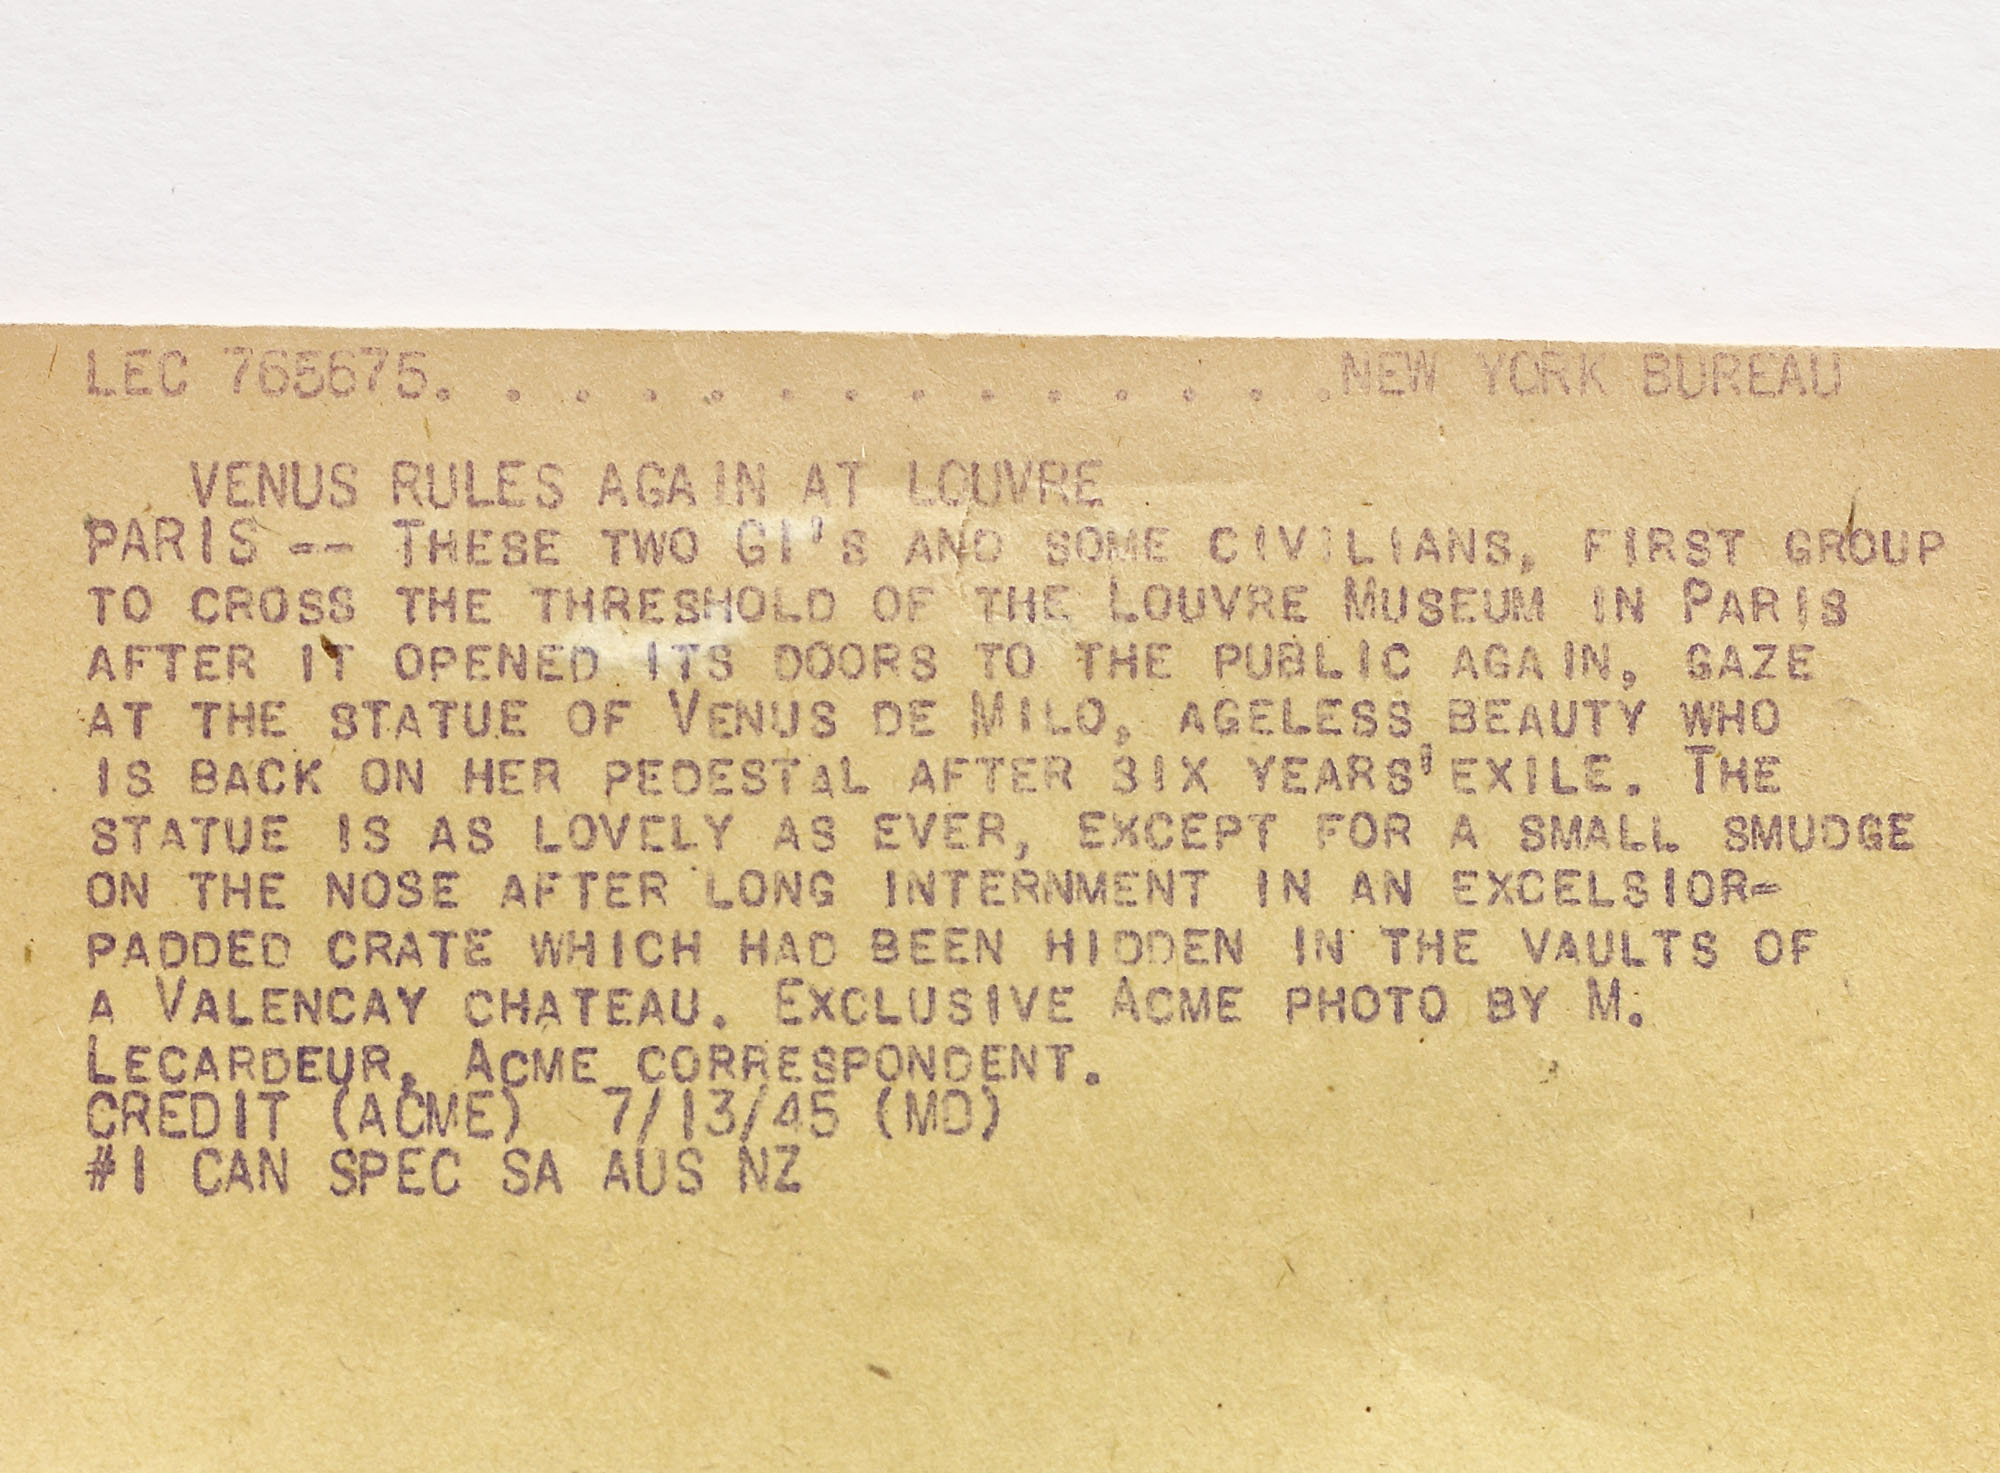 LEC 765675. . . . . . . . . . . . . .NEW YORK BUREAU
VENUS RULES AGAIN AT LOUVRE
PARIS -- THESE TWO GI'S AND SOME CIVILIANS, FIRST GROUP
TO CROSS THE THRESHOLD OF THE LOUVRE MUSEUM IN PARIS
AFTER IT OPENED ITS DOORS TO THE PUBLIC AGAIN, GAZE
AT THE STATUE OF VENUS DE MILO, AGELESS BEAUTY WHO
IS BACK ON HER PEDESTAL AFTER SIX YEARS' EXILE. THE
STATUE IS AS LOVELY AS EVER, EXCEPT FOR A SMALL SMUDGE
ON THE NOSE AFTER LONG INTERNMENT IN AN EXCELSIOR-
PADDED CRATE WHICH HAD BEEN HIDDEN IN THE VAULTS OF
A VALENCAY CHATEAU. EXCLUSIVE ACME PHOTO BY M.
LECARDEUR, ACME CORRESPONDENT.
CREDIT (ACME) 7/13/45 (MD)
#1 CAN SPEC SA AUS NZ